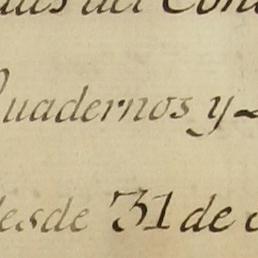 del Con
uadernos y
desde 31 de